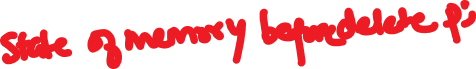 State of memory before delete p;